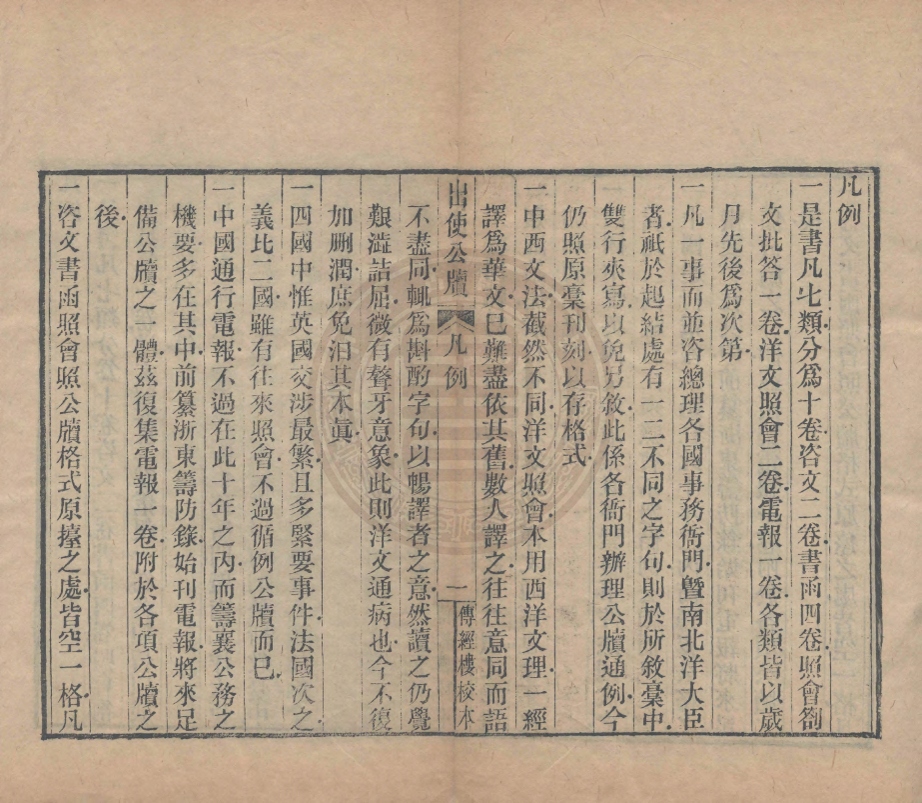 凡例
一是書凡七類分爲十卷咨文二卷書函四卷照會劄
文批答一卷洋文照會二卷電報一卷各類皆以歲
月先後爲次第
一凡一事而並咨總理各國事務衙門曁南北洋大臣
者祇於起結處有一二不同之字句則於所敘稾中
雙行夾寫以免另敘此係各衙門辦理公牘通例今
仍照原稾刊刻以存格式
一中西文法截然不同洋文照會本用西洋文理一經
譯爲華文已難盡依其舊數人譯之往往意同而語
出使公牘
凡例
一
傳經樓校本
不盡同輒爲斟酌字句以暢譯者之意然讀之仍覺
艱澁詰屈微有聱牙意象此則洋文通病也今不復
加刪潤庶免汨其本眞
一四國中惟英國交涉最繁且多緊要事件法國次之
義比二國雖有往來照會不過循例公牘而已
一中國通行電報不過在此十年之內而籌襄公務之
機要多在其中前纂浙東籌防錄始刊電報將來足
備公牘之一體茲復集電報一卷附於各項公牘之
後
一咨文書函照會照公牘格式原擡之處皆空一格凡